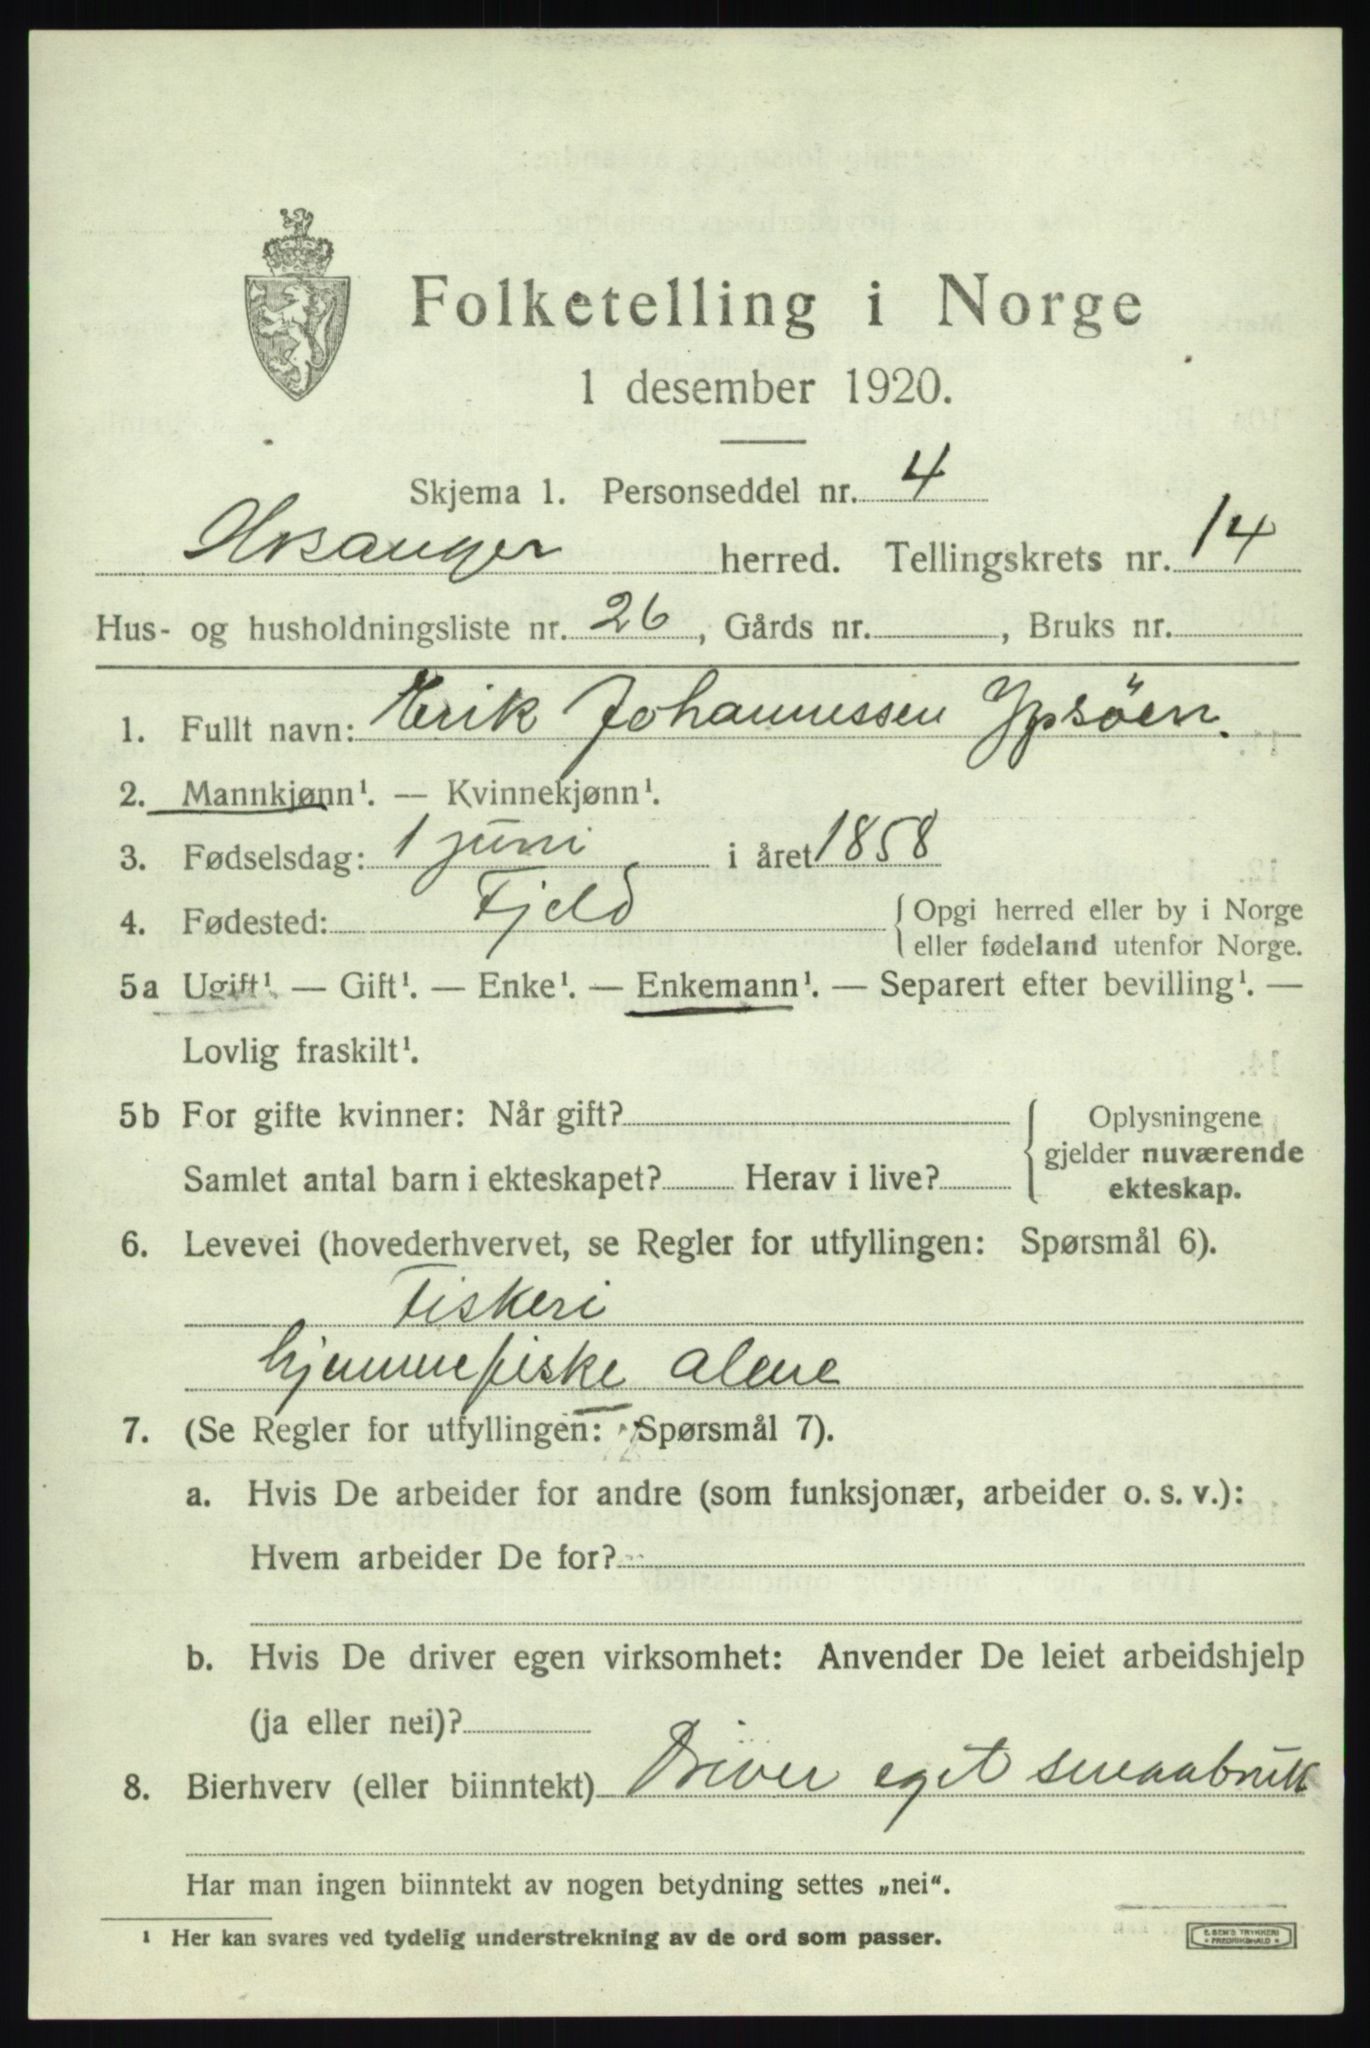 Folketelling i Norge
1 desember 1920.
Skjema 1. Personseddel nr. 4
herred. Tellingskrets nr. 14
Hus- og husholdningsliste nr. 26, Gårds nr. , Bruks nr.
1. Fullt navn: Erik Johannessen Ypsöen.
2. Mannkjønn¹. — Kvinnekjønn¹.
3. Fødselsdag: 1 juni i året 1858
4. Fødested: Fjeld { Opgi herred eller by i Norge
eller fødeland utenfor Norge.
5a Ugift¹. — Gift¹. — Enke¹. — Enkemann¹. — Separert efter bevilling¹. —
Lovlig fraskilt¹.
5b For gifte kvinner: Når gift? { Oplysningene
gjelder nuværende
Samlet antal barn i ekteskapet? Herav i live? ekteskap.
6. Levevei (hovederhvervet, se Regler for utfyllingen: Spørsmål 6).
Fiskeri
hjemmefiske alene
7. (Se Regler for utfyllingen: Spørsmål 7).
a. Hvis De arbeider for andre (som funksjonær, arbeider o. s. v.):
Hvem arbeider De for?
b. Hvis De driver egen virksomhet: Anvender De leiet arbeidshjelp
(ja eller nei)?
8. Bierhverv (eller biinntekt) Driver eget smaabruk
Har man ingen biinntekt av nogen betydning settes „nei“.
¹ Her kan svares ved tydelig understrekning av de ord som passer.